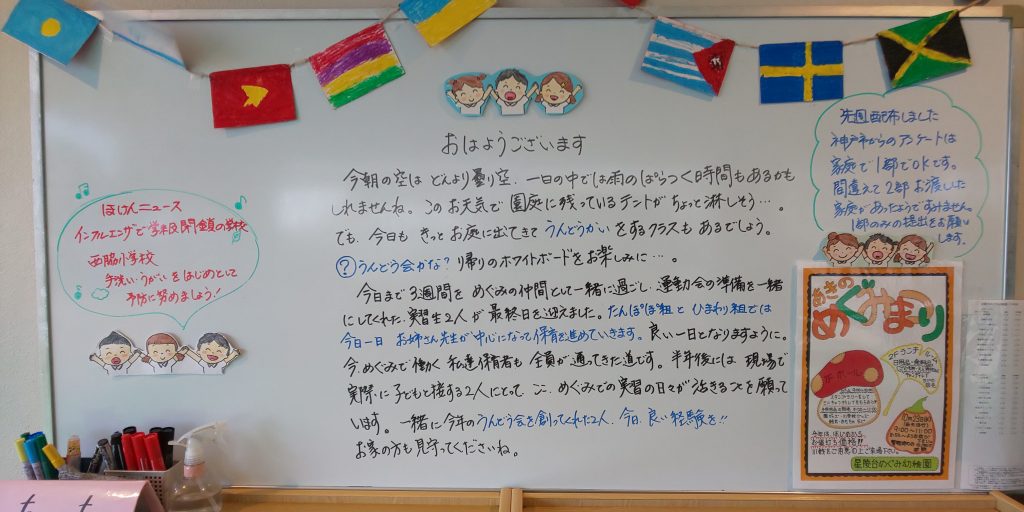 おはようございます
今朝の空は どんより曇り空、一日の中では雨のぱらつく時間もあるかも
しれませんね。このお天気で園庭に残っているテントがちょっと淋しそう…。
でも、今日も きっとお庭に出てきて うんどうかい をするクラスも あるでしょう。
? うんどう会かな? 帰りのホワイトボードをお楽しみに…。
今日まで3週間を めぐみの仲間として一緒に過ごし、運動会の準備を一緒
にしてくれた、実習生2人が最終日を迎えました。たんぽぽ組と ひまわり組では
今日一日 お姉さん先生が中心になって保育を進めていきます。良い一日となりますように。
今、めぐみで働く 私達保育者も 全員が通ってきた道です。半年後には 現場で
実際に子どもと接する2人にとって、ここ、めぐみでの実習の日々が活きることを願って
います。一緒に今年のうんどう会を創ってくれた2人、今日、良い経験を!!
お家の方も見守ってくださいね。
ほけんニュース
インフルエンザで学級閉鎖の学校
西脇小学校
手洗い・うがいをはじめとして
予防に努めましょう!
先週配布しました
神戸市からのアンケートは
家庭で1部でOKです。
間違えて2部お渡しした
家庭があったようですみません。
1部のみの提出をお願い
します。
あきの
めぐみまつり
1Fホール
2Fランチ
9:00~11:00
星陵台めぐみ幼稚園